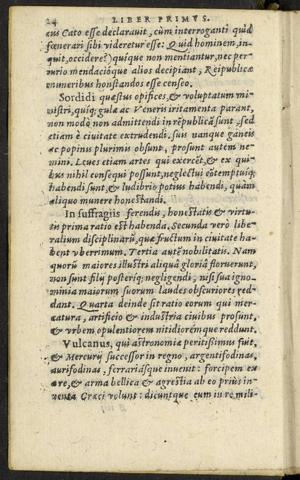 24 LIBER PRIMVS.
cus Cato esse declarauit, cùm interroganti quid
fœnerari sibi videretur esse: Quid hominem, in-
quit, occidere? quique non mentiantur, nec per-
iurio mendacióque alios decipiant, Reipublicæ
muneribus honestandos esse censeo.
Sordidi quæstus opifices, & voluptatum mi-
nistri, quíq; gulæ ac Veneris iritamenta parant,
non modò non admittendi in rēpublicā sunt, sed
etiam è ciuitate extrudendi, suis vanque ganeis
ac popinis plurimis obsunt, prosunt autem ne-
mini. Leues etiam artes qui exercēt, & ex qui
bus nihil consequi possunt, neglectui cōtemptuíq;
habendi sunt, & ludibrio potius habendi, quàm
aliquo munere honestandi.
In suffragiis ferendis, honestatis & virtu-
tis prima ratio est habenda. Secunda verò libe-
ralium disciplinarū, quæ fructum in ciuitate ha-
bent vberrimum. Tertia autē nobilitatis. Nam
quorū maiores illustri aliqua gloriâ floruerunt,
non sunt filij posteríq; negligendi, nisi sua igno-
minia maiorum suorum laudes obscuriores red-
dant. Quarta deinde sit ratio eorum qui mer-
catura, artificio & industria ciuibus prosunt,
& vrbem opulentiorem nitidiorémque reddunt.
Vulcanus, qui astronomiæ peritissimus fuit,
& Mercurij successor in regno, argentifodinas,
aurifodinas, ferrariásque inuenit: forcipem ex
ære, & arma bellica & agrestia ab eo priùs in-
uenta Græci volunt: dicuntque eum in re mili-